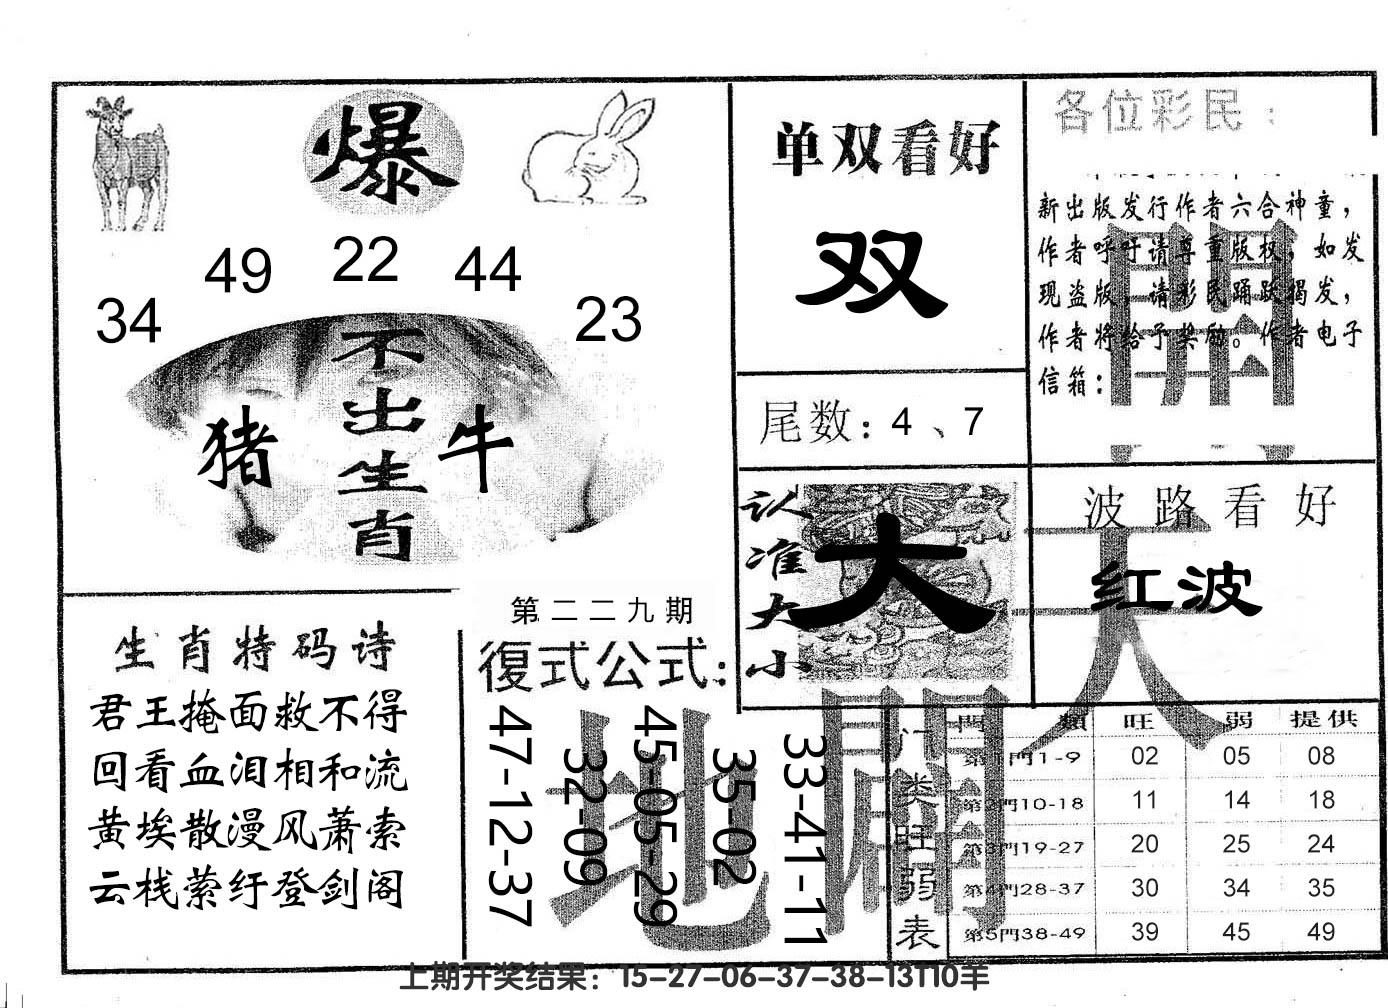 爆
34
49
22
44
23
不出生肖
猪
牛
单双看好
双
尾数：4、7
各位彩民：
新出版发行作者六合神童，
作者呼吁请尊重版权，如发
现盗版，请彩民踊跃揭发，
作者将给予奖励。作者电子
信箱：
開
认准大小
大
波路看好
红波
天
生肖特码诗
君王掩面救不得
回看血泪相和流
黄埃散漫风萧索
云栈萦纡登剑阁
第二二九期
復式公式：
47-12-37
32-09
45-05-29
35-02
33-41-11
地
門類 旺 弱 提供
门类旺弱表
第1門1-9 02 05 08
第2門10-18 11 14 18
第3門19-27 20 25 24
第4門28-37 30 34 35
第5門38-49 39 45 49
上期开奖结果：15-27-06-37-38-13T10羊